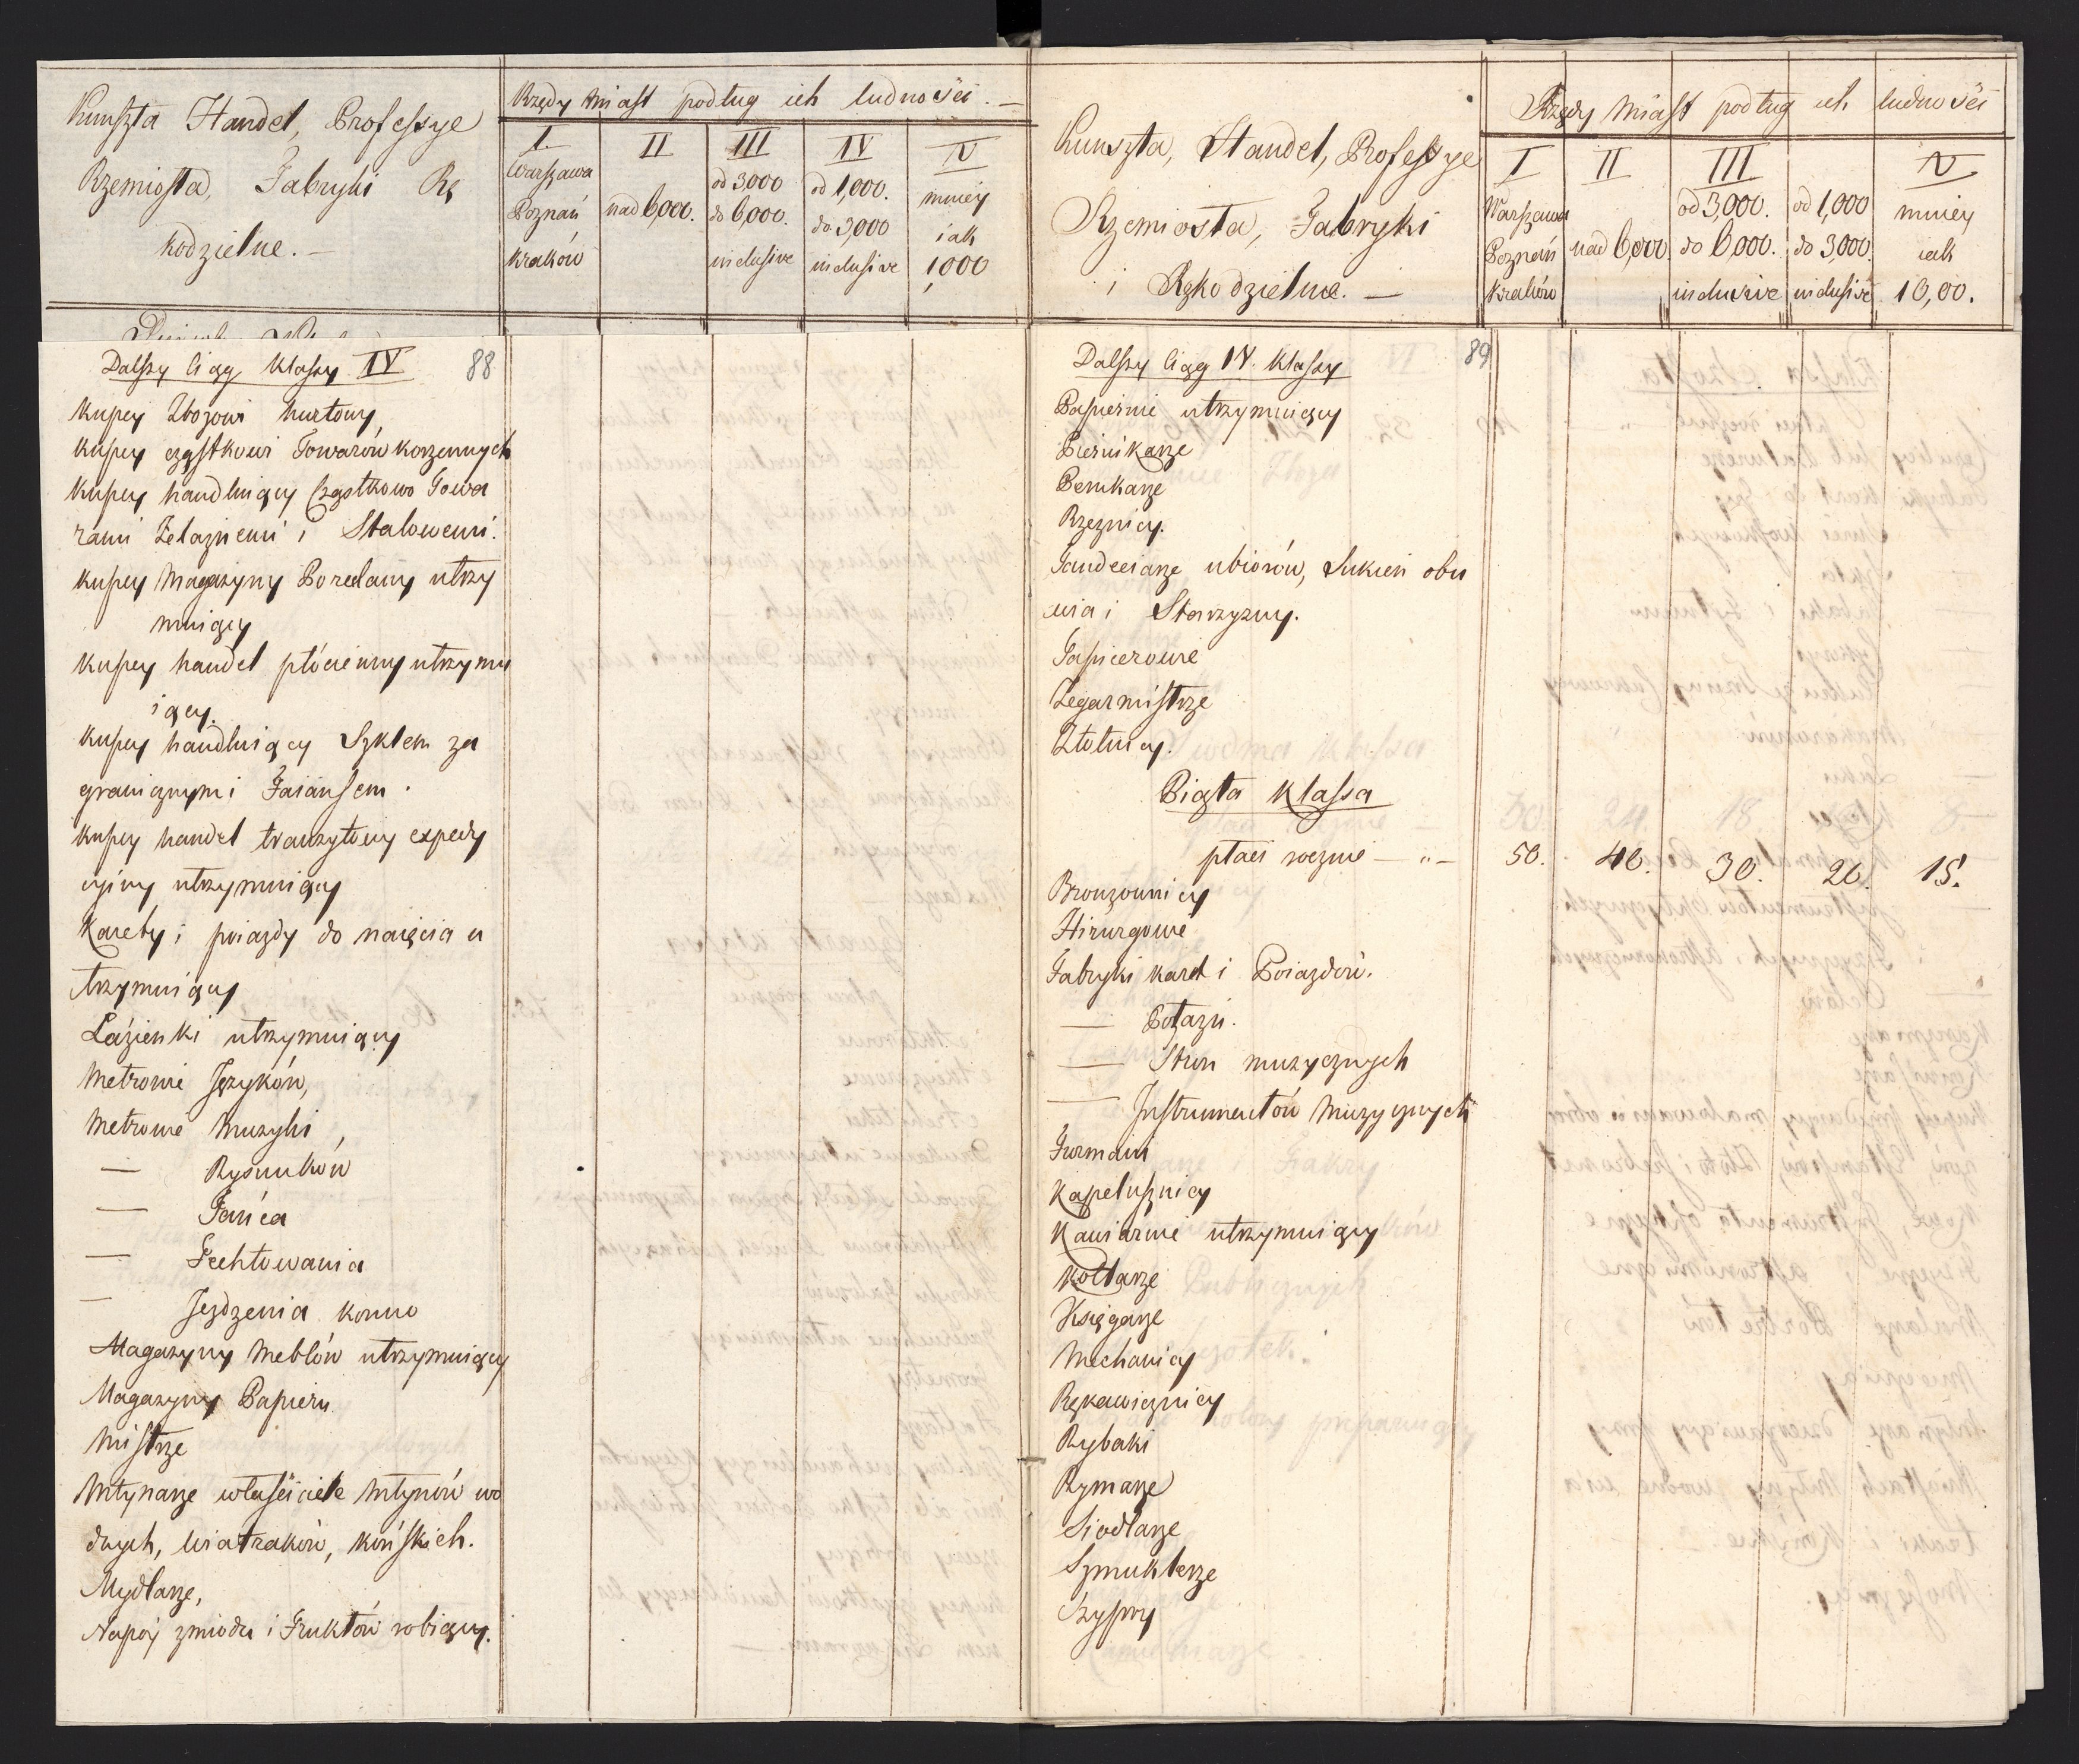 Kunszta Handel, Professye
Rzemiosła, Fabryki Rę
kodzielne. —
Rzędy Miast podług ich ludności. —
I.
Warszawa
Poznań
Kraków
II
nad 6,000.
III
od 3,000
do 6,000.
inclusive
IV
od 1,000.
do 3,000
inclusive
V
mniey
iak
1,000
Dalszy Ciąg Klassy IV
88
Kupcy Zbożowi hurtowy
Kupcy cząstkowi Towarów korzennych
Kupcy handluiący Cząstkowo Towa
rami Żelaznemi i Stalowemi.
Kupcy Magazyny Porcelany utrzy
muiący
Kupcy handel płócienny utrzymu
iący.
Kupcy handluiący Szkłem za
granicznym i Faiansem.
Kupcy handel tranzytowy expedy
cyiny utrzymuiący
Karety i poiazdy do naięcia u
trzymuiący
Łazienki utrzymuiący
Metrowie Języków,
Metrowie Muzyki,
— Rysunków
— Tańca
— Fechtowania
— Jeżdzenia konno
Magazyny Meblów utrzymuiący
Magazyny Papieru
Mistrze
Młynarze właściciele Młynów wo
dnych, wiatraków, końskich.
Mydlarze,
Napóy zmiodu i Fruktów robiący.
Kunszta, Handel, Professye
Rzemiosła, Fabryki
i Rękodzielne. —
Rzędy Miast podług ich ludności
I
Warszawa
Poznań
Kraków
II
nad 6,000.
III
od 3,000.
do 6,000.
inclusive
od 1,000
do 3,000.
inclusive
V
mniey
iak
10,00.
Dalszy Ciąg IV. Klassy
89
Papiernie utrzymuiący
Piernikarze
Perukarze
Rzeznicy.
Tandeciarze ubiorów, Sukien obu
wia i Starzyzny.
Tapicerowie
Zegarmistrze
Złotnicy.
Piąta Klassa
płaci rocznie — „ — 50. 40. 30. 20. 15.
Bronzownicy
Hirurgowie
Fabryki karet i Poiazdów.
— Potazu.
— Strun muzycznych
— Instrumentów Muzycznych
Furmani
Kapelusznicy
Kawiarnie utrzymuiący
Kotlarze
Księgarze
Mechanicy
Rękawicznicy
Rybaki
Rymarze
Siodlarze
Szmuklerze
Szypry